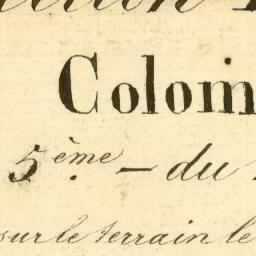 Colom
5ème. — du
sur le terrain le